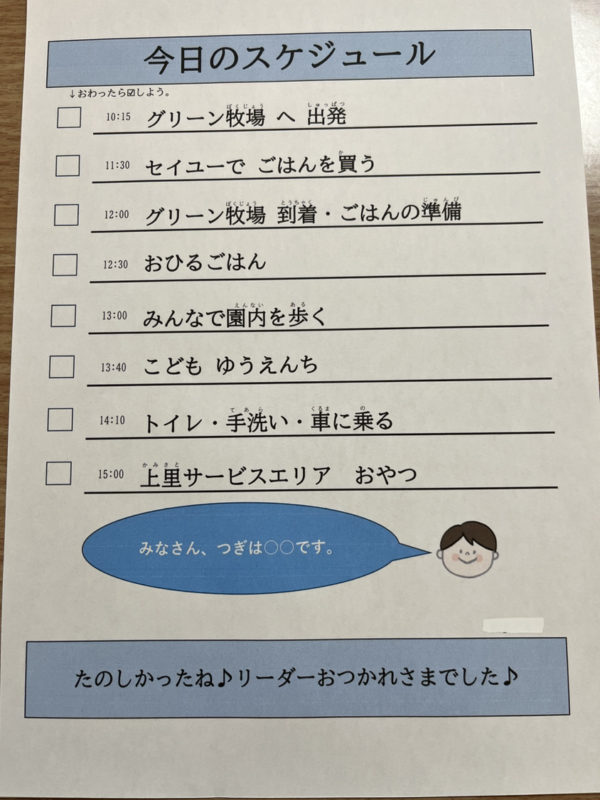 今日のスケジュール
↓おわったら☑しよう。
10:15 グリーン牧場 へ 出発
11:30 セイユーで ごはんを買う
12:00 グリーン牧場 到着・ごはんの準備
12:30 おひるごはん
13:00 みんなで園内を歩く
13:40 こども ゆうえんち
14:10 トイレ・手洗い・車に乗る
15:00 上里サービスエリア おやつ
みなさん、つぎは○○です。
たのしかったね♪リーダーおつかれさまでした♪